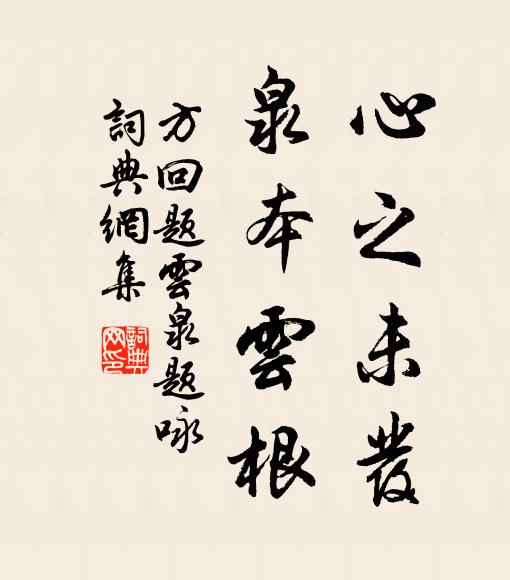 心之未發
泉本雲根
方回題雲泉題咏
詞典網集
詞典網印